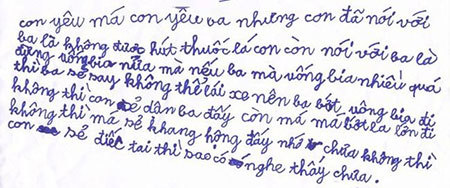 con yêu má con yêu ba nhưng con đã nói với
ba là không được hút thuốc lá con còn nói với ba là
đừng uông bia nữa mà nếu ba mà uống bia nhiều quá
thì ba sẽ say không thể lái xe nên ba bớt uông bia đi
không thì con sẽ dân ba đấy còn má má bớt la lớn đi
không thì má sẽ khang hộng đấy nhớ chữa không thì
con sẽ điếc tai thì sao có nghe thấy chữa.